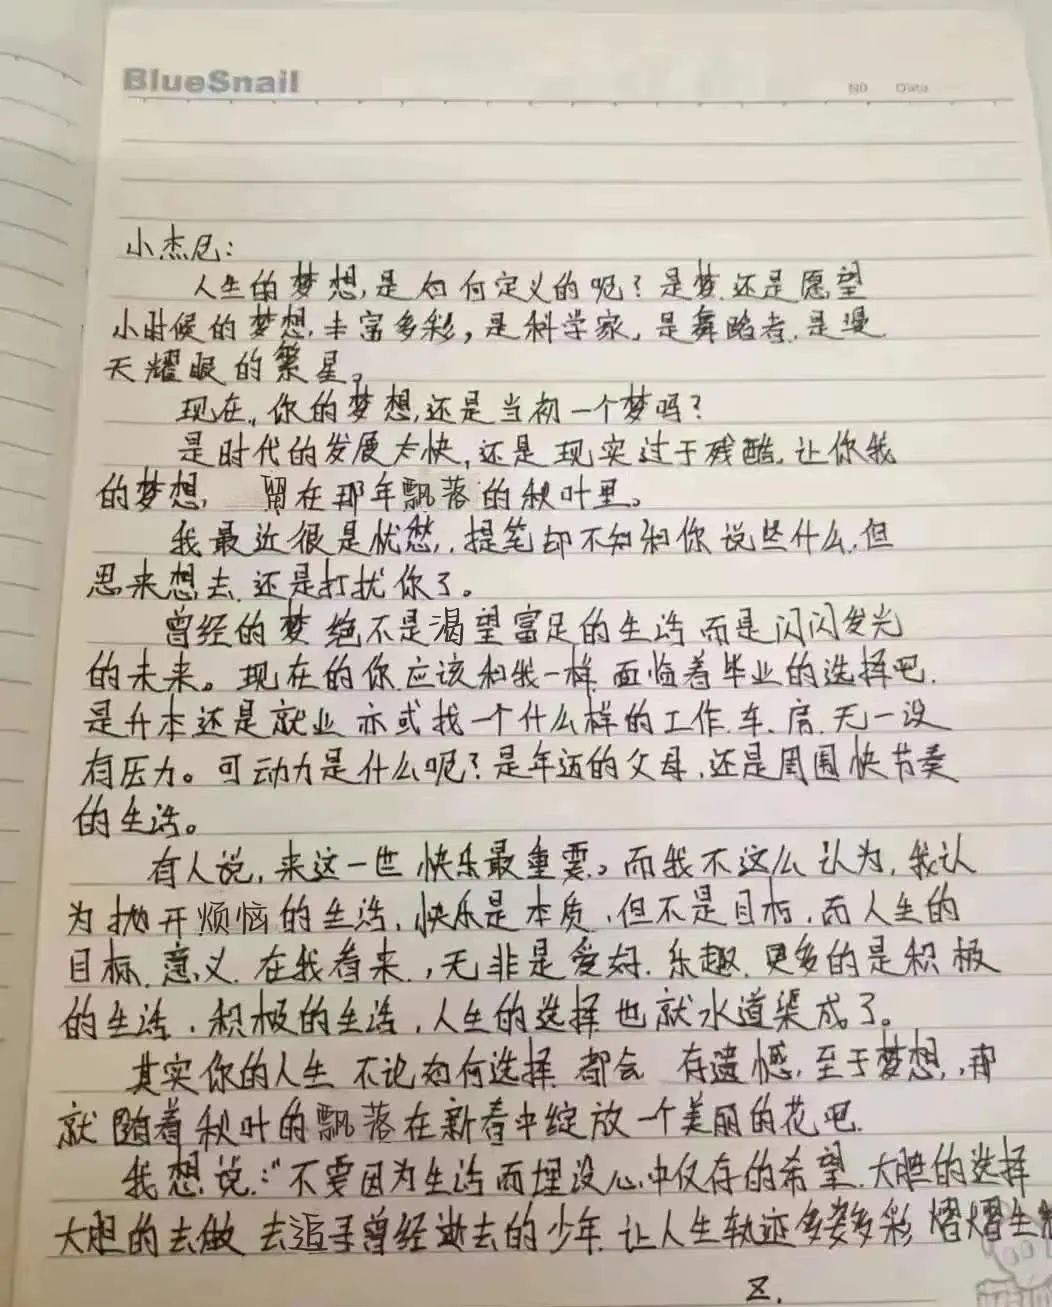 BlueSnail
NO Date
小杰尼：
人生的梦想，是如何定义的呢？是梦 还是愿望
小时候的梦想，丰富多彩，是科学家，是舞蹈者，是漫
天耀眼的繁星。
现在，你的梦想，还是当初一个梦吗？
是时代的发展太快，还是现实过于残酷，让你我
的梦想， 留在那年飘落的秋叶里。
我最近很是忧愁，提笔却不知和你说些什么，但
思来想去，还是打扰你了。
曾经的梦 绝不是渴望富足的生活 而是闪闪发光
的未来。现在的你应该和我一样 面临着毕业的选择吧，
是升本还是就业 亦或找一个什么样的工作，车、房，无一没
有压力。可动力是什么呢？是年迈的父母，还是周围快节奏
的生活。
有人说，来这一世 快乐最重要。而我不这么认为，我认
为抛开烦恼的生活，快乐是本质，但不是目标，而人生的
目标、意义，在我看来，无非是爱好、乐趣，更多的是积极
的生活，积极的生活，人生的选择也就水道渠成了。
其实你的人生 不论如何选择 都会 有遗憾，至于梦想，那
就随着秋叶的飘落在新春中绽放一个美丽的花吧，
我想说：“不要因为生活而埋没心中仅存的希望，大胆的选择
大胆的去做 去追寻曾经逝去的少年，让人生轨迹多姿多彩 熠熠生
Z.